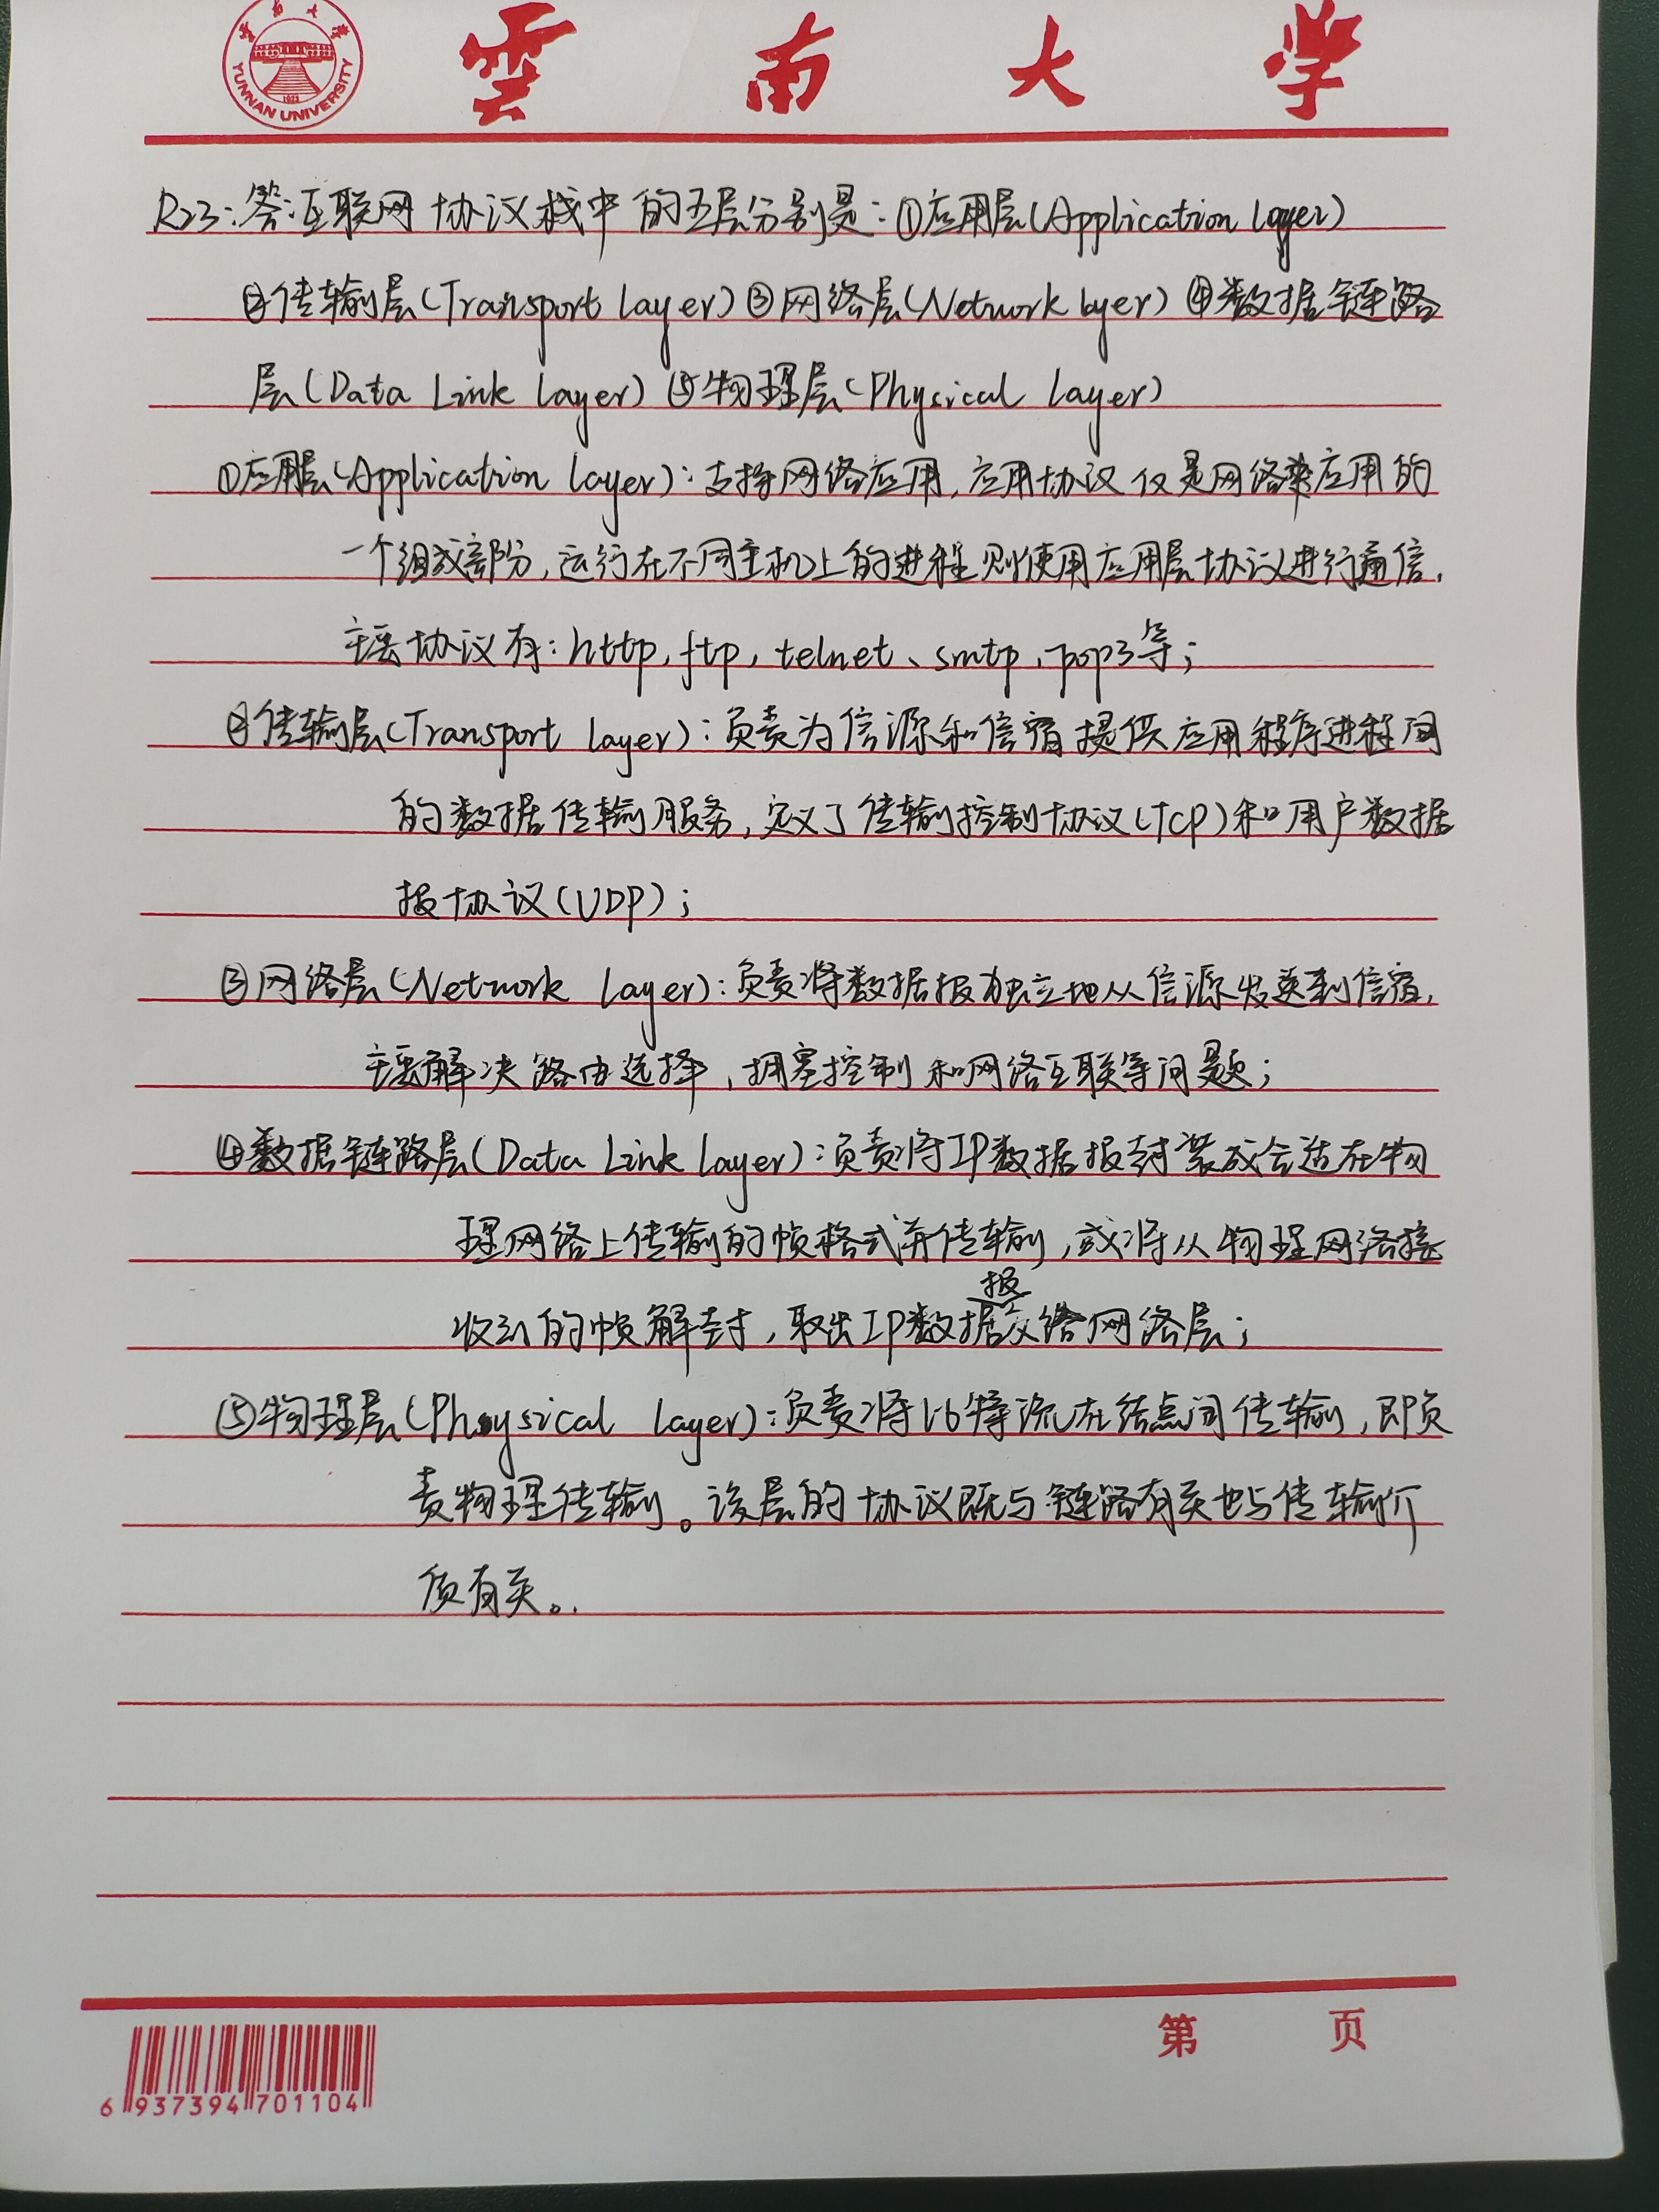 雲南大学
雲南大学
YUNNAN UNIVERSITY
1923
R23:答:互联网协议栈中的五层分别是:①应用层(Application layer)
②传输层(Transport layer)③网络层(Network layer)④数据链路
层(Data Link layer)⑤物理层(Physical layer)
①应用层(Application layer):支持网络应用,应用协议仅是网络应用的
一个组成部分,运行在不同主机上的进程则使用应用层协议进行通信.
主要协议有:http,ftp,telnet、smtp,pop3等;
②传输层(Transport layer):负责为信源和信宿提供应用程序进程间
的数据传输服务,定义了传输控制协议(TCP)和用户数据
报协议(UDP);
③网络层(Network layer):负责将数据报独立地从信源发送到信宿,
主要解决路由选择,拥塞控制和网络互联等问题;
④数据链路层(Data Link layer):负责将IP数据报封装成合适在物
理网络上传输的帧格式并传输,或将从物理网络接
收到的帧解封,取出IP数据报交给网络层;
⑤物理层(Physical layer):负责将比特流在结点间传输,即负
责物理传输。该层的协议既与链路有关也与传输介
质有关。
第 页
6 937394 701104